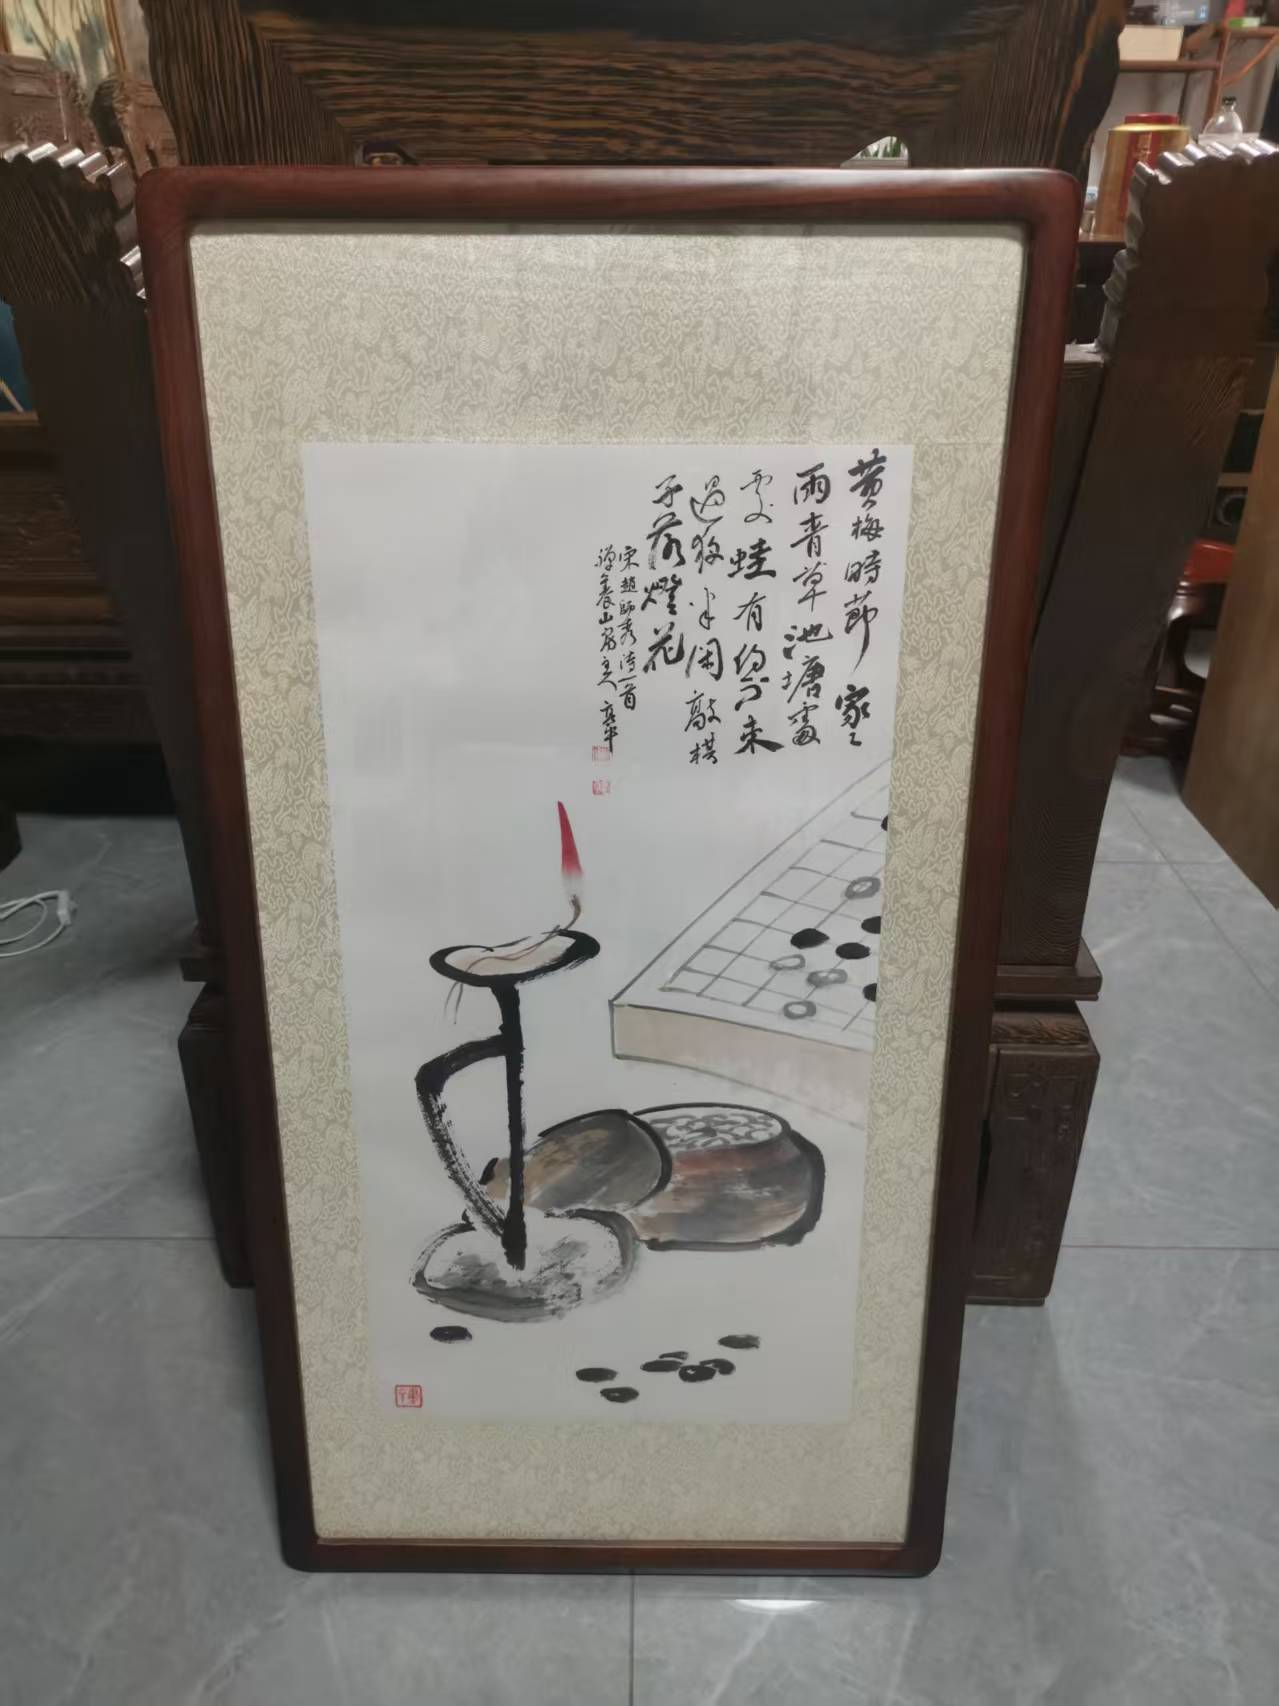 黄梅時節家々
雨青草池塘處
處蛙有約不来
過夜半閑敲棋
子落燈花
宋趙師秀詩一首
禅養山房主人